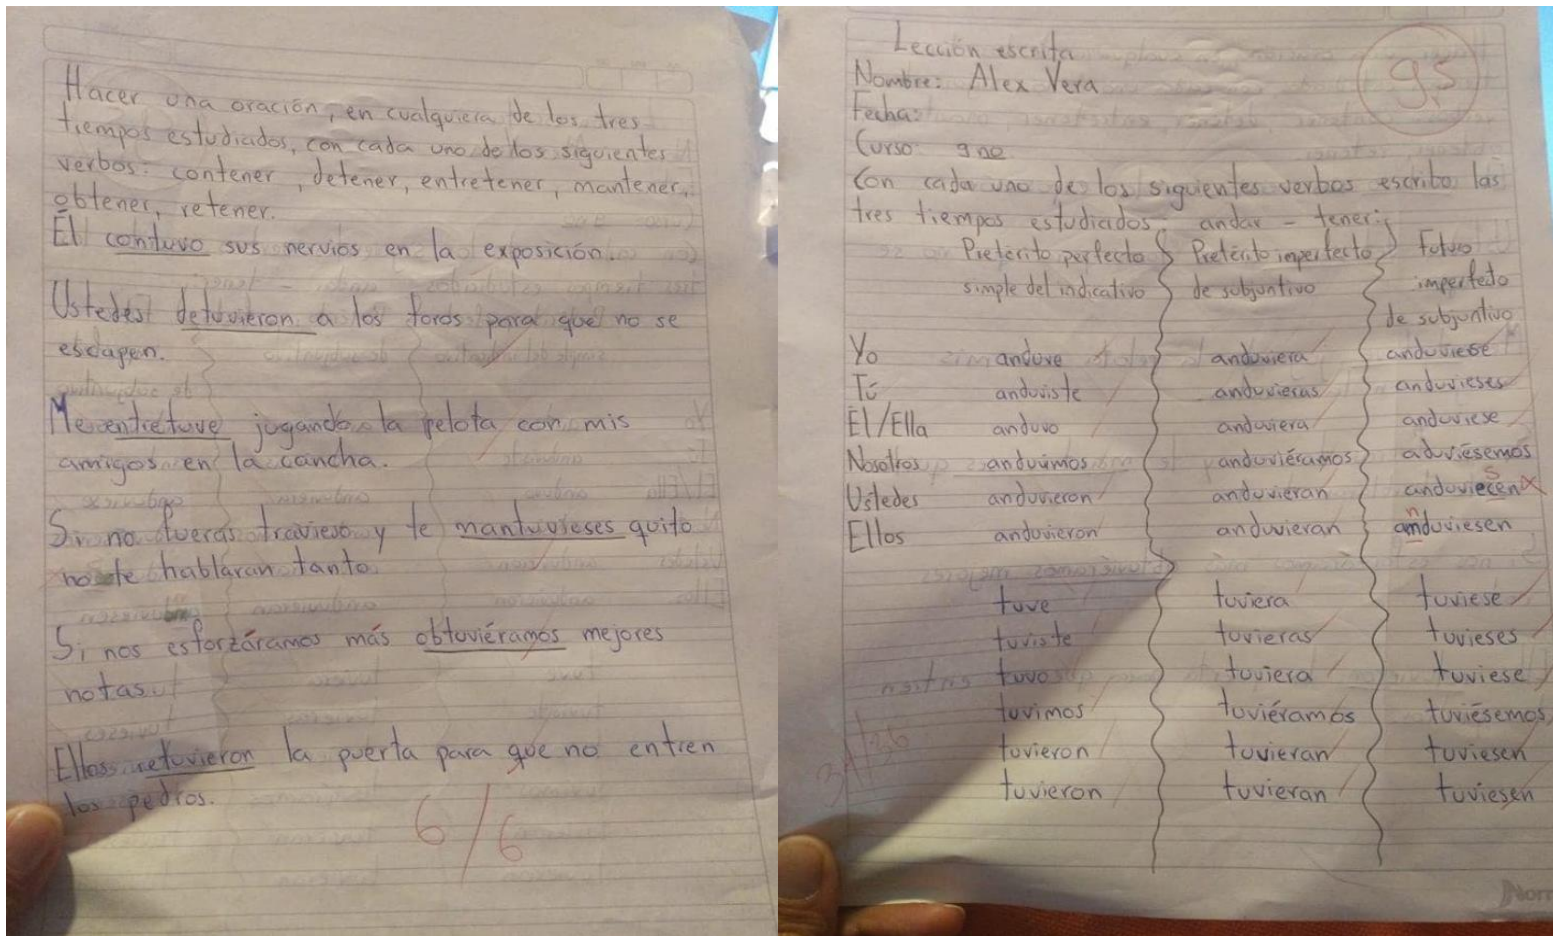 Hacer una oración, en cualquiera de los tres
tiempos estudiados, con cada uno de los siguientes
verbos: contener, detener, entretener, mantener,
obtener, retener.
Él contuvo sus nervios en la exposición.
Ustedes detuvieron a los toros para que no se
escapen.
Me entretuve jugando la pelota con mis
amigos en la cancha.
Si no fueras travieso y te mantuvieses quito
no te hablaran tanto.
Si nos esforzáramos más obtuviéramos mejores
notas.
Ellos retuvieron la puerta para que no entren
los pedros.
6/6
Lección escrita
9,5
Nombre: Alex Vera
Fecha:
Curso: 9no
Con cada uno de los siguientes verbos escriba las
tres tiempos estudiados andar - tener:
Pretérito perfecto Pretérito imperfecto Futuro
simple del indicativo de subjuntivo imperfecto
de subjuntivo
Yo anduve anduviera anduviese
Tú anduviste anduvieras anduvieses
Él/Ella anduvo anduviera anduviese
Nosotros anduvimos anduviéramos aduviésemos
Ustedes anduvieron anduvieran anduviecen
s
Ellos anduvieron anduvieran amduviesen
n
tuve tuviera tuviese
tuviste tuvieras tuvieses
tuvo tuviera tuviese
tuvimos tuviéramos tuviésemos
tuvieron tuvieran tuviesen
tuvieron tuvieran tuviesen
Norm